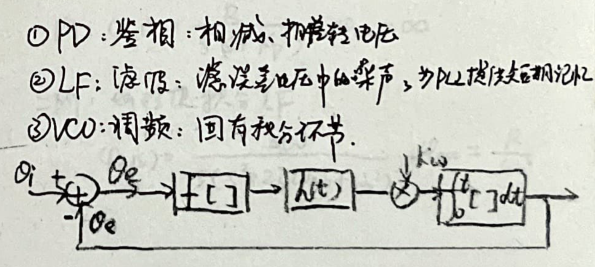 ①PD:鉴相:相减、相差转电压
②LF:滤波:滤误差电压中的噪声,为PLL提供短期记忆
③VCO:调频:固有积分环节.
θi + + - θe f[ ] h(t) × Kω ∫₀ᵗ[ ]dt
θe